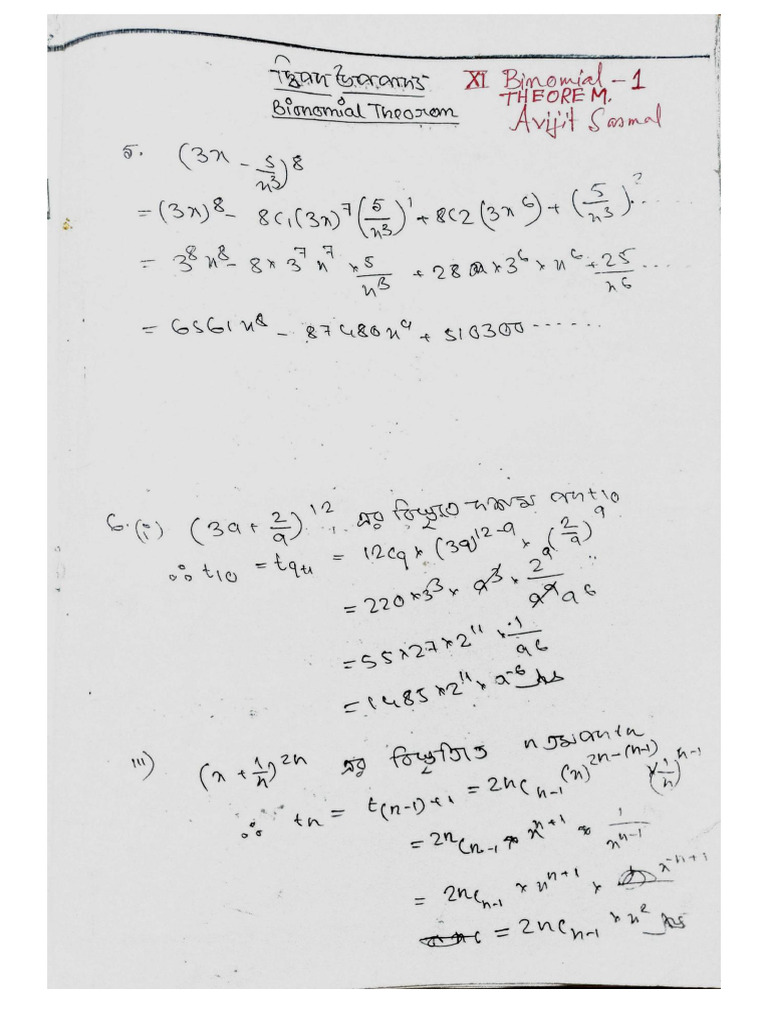 দ্বিপদ উপপাদ্য
XI Binomial - 1
THEOREM.
Bionomial Theorem
Avijit Sasmal
5. (3x - 5/x³)⁸
= (3x)⁸ - 8C₁(3x)⁷(5/x³)¹ + 8C2(3x⁶) + (5/x³)²...
= 3⁸x⁸ - 8 × 3⁷x⁷ × 5/x³ + 28 × 3⁶ × x⁶ + 25/x⁶ ....
= 6561x⁸ - 87480x⁴ + 510300 ......
6. (i) (3a + 2/a)¹² এর বিস্তৃতে দশতম পদ t10
∴ t₁₀ = t₉₊₁ = 12C₉ × (3a)¹²⁻⁹ × (2/a)⁹
= 220 × 3³ × a³ × 2⁹/a⁹ a⁶
= 55 × 27 × 2¹¹ × 1/a⁶
= 1485 × 2¹¹ × a⁻⁶ Ans
iii) (x + 1/x)²ⁿ এর বিস্তৃতিতে n তম পদ tn
∴ tn = t(n-1)+1 = 2nCₙ₋₁ (x)²ⁿ⁻⁽ⁿ⁻¹⁾ × (1/x)ⁿ⁻¹
= 2nCₙ₋₁ × xⁿ⁺¹ × 1/xⁿ⁻¹
= 2nCₙ₋₁ × xⁿ⁺¹ × x⁻ⁿ⁺¹
= 2nCₙ₋₁ × x² Ans